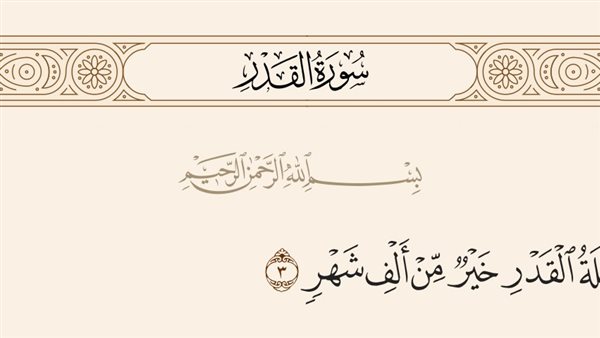 سُورَةُ الْقَدْرِ
بِسْمِ اللَّهِ الرَّحْمَٰنِ الرَّحِيمِ
ٱلْقَدْرِ خَيْرٌ مِّنْ أَلْفِ شَهْرٍ ٣